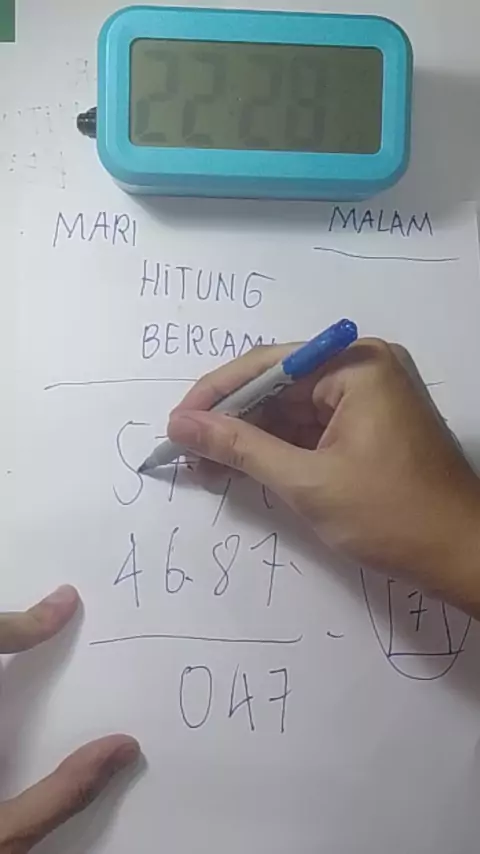 22:28
MARI
MALAM
HiTUNG
BERSAM
46.87.
7
-
047